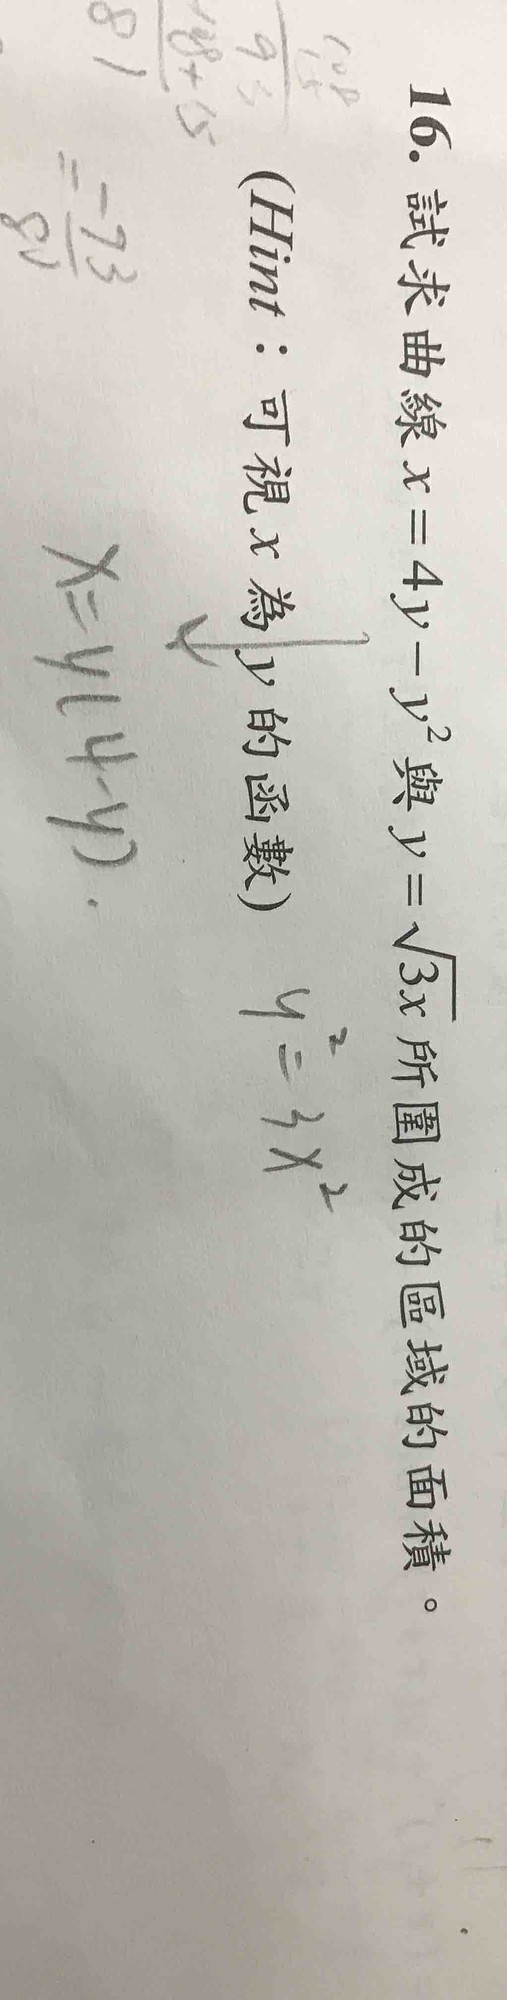 108
15
93
108+15
81
= -73
81
16. 試求曲線 x = 4y − y² 與 y = √3x 所圍成的區域的面積。
(Hint：可視 x 為 y 的函數)
y² = 3x²
x = y(4-y).